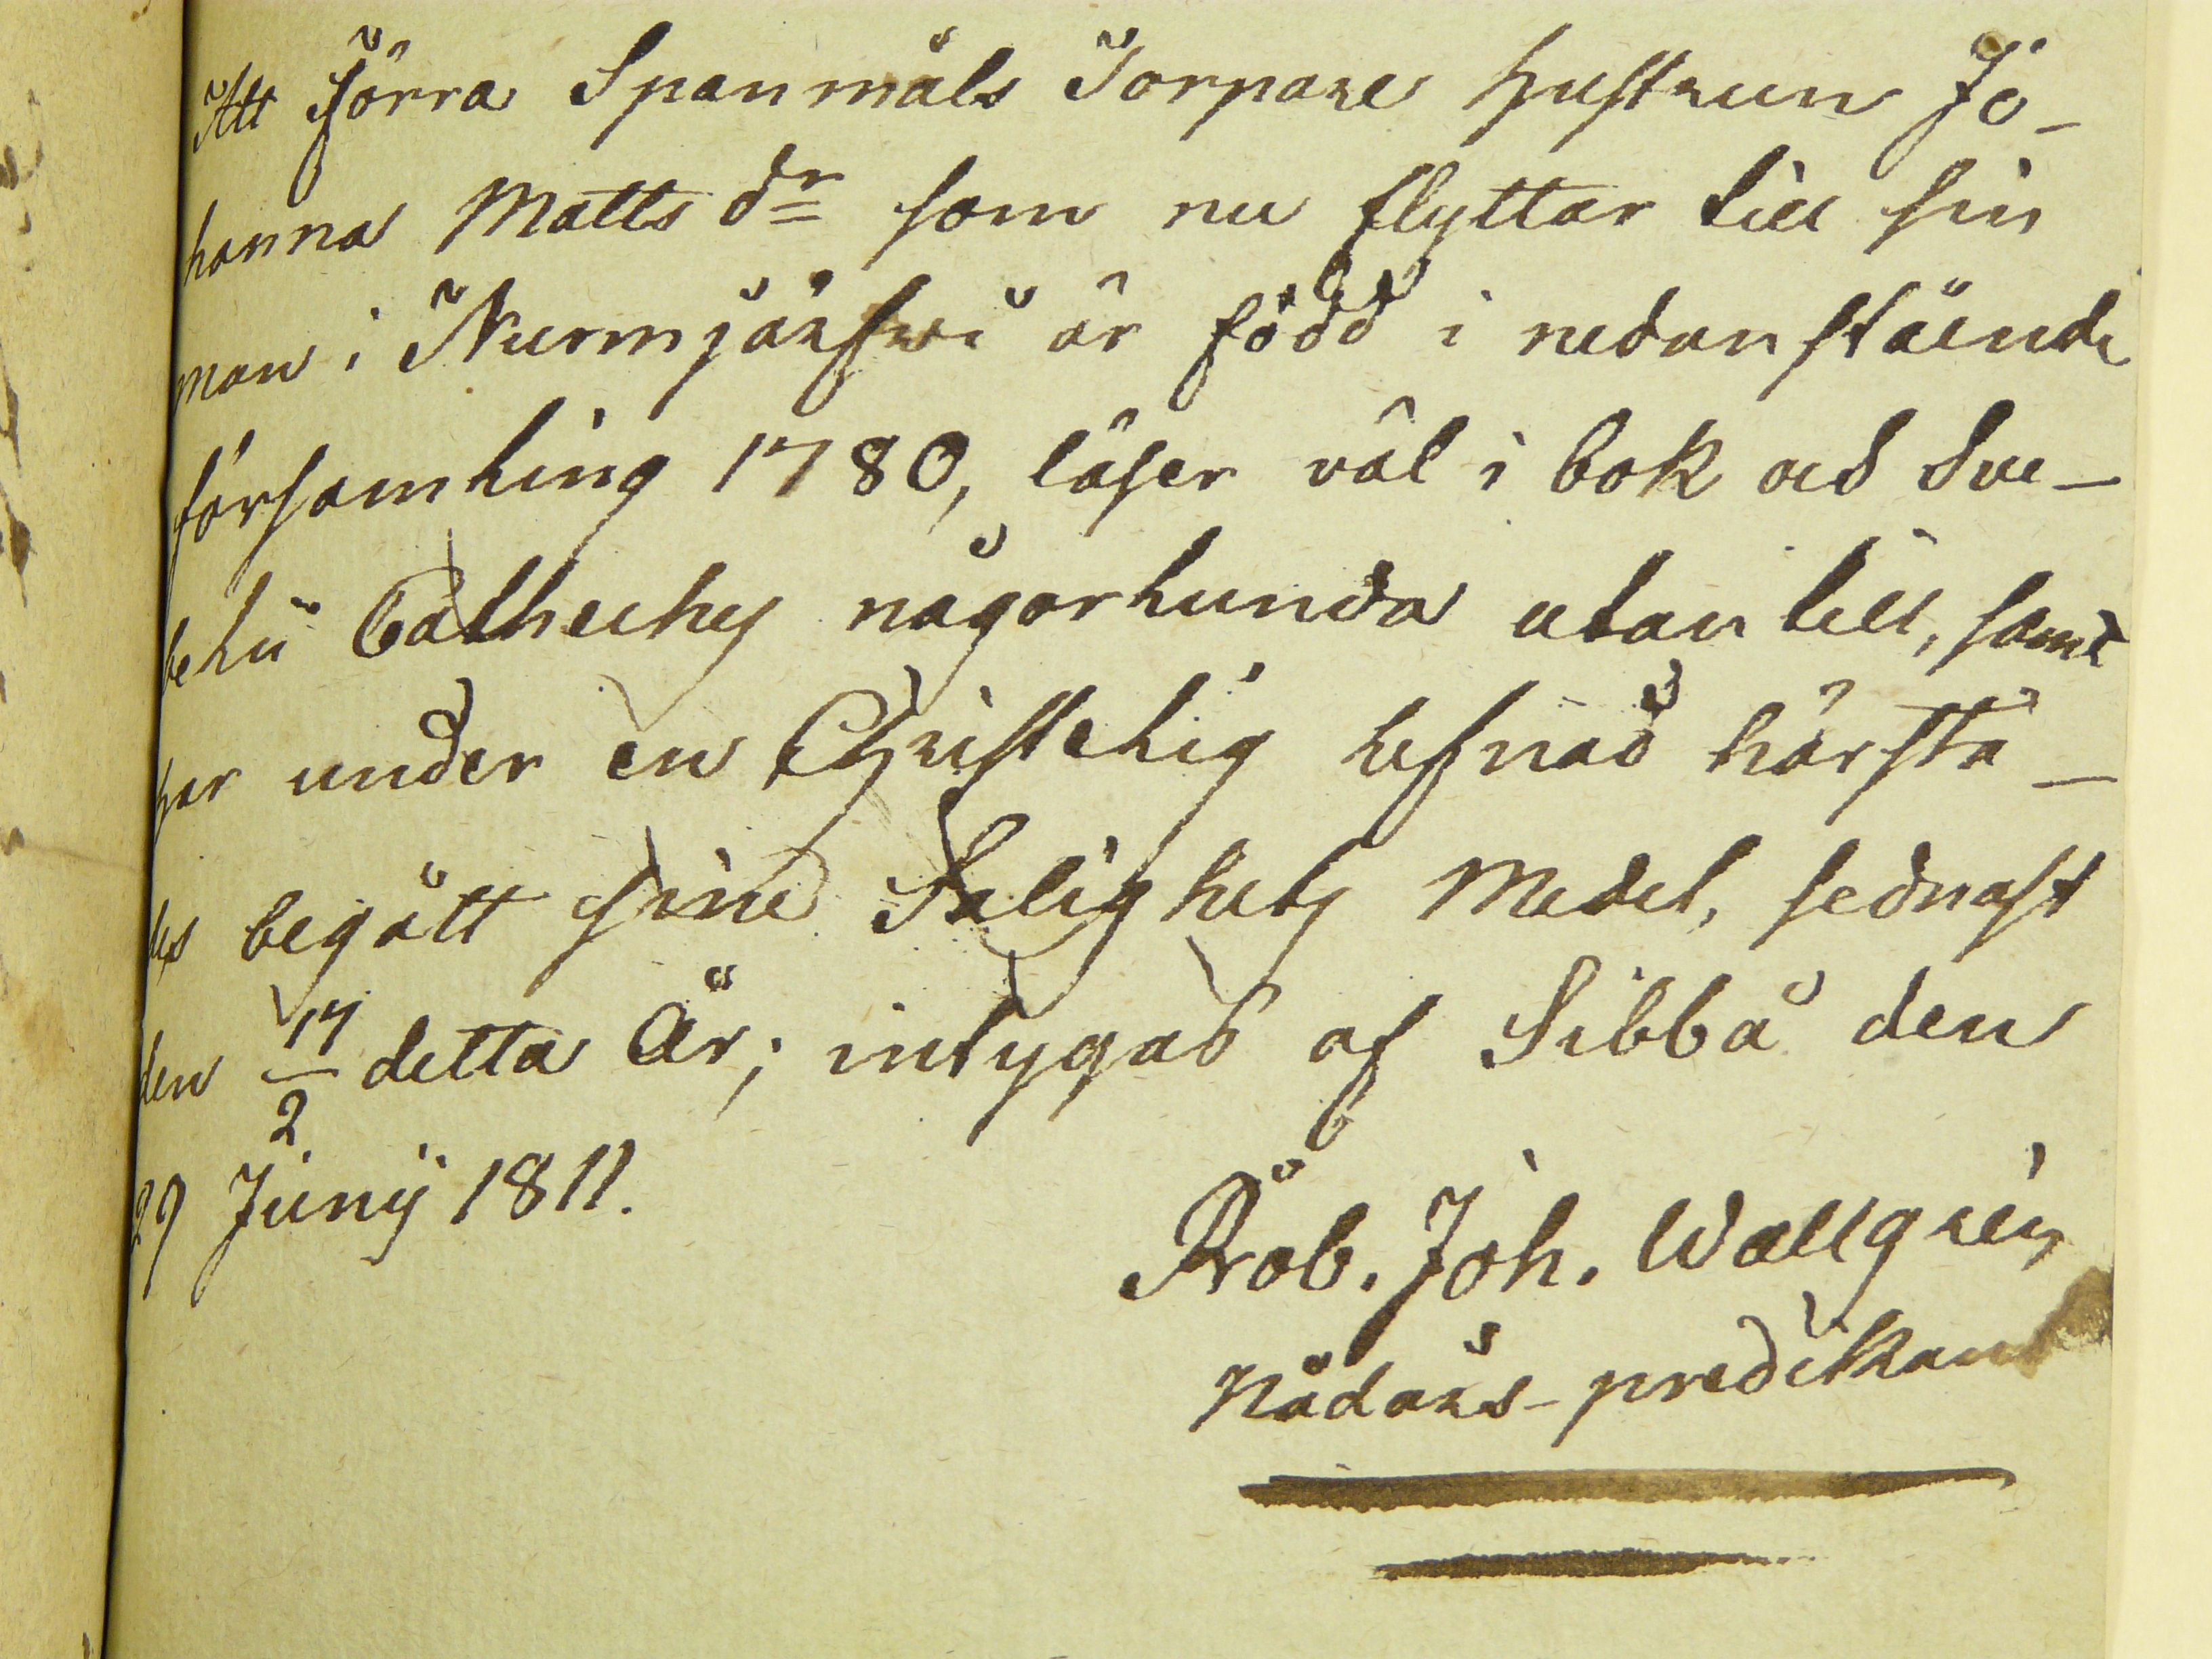 Att förra Spanmåls Torpare hustrun Jo-
hanna Matts dr som nu flyttar till sin
man i Nurmjärfwi är född i nedanstående
församling 1780, läser väl i bok och Sve-
belii Cathechs någorlunda utantill, samt
har under en Christelig lefnad härstä-
des begått sine Salighets Medel, sednast
den 17/2 detta År; intygas af Sibbå den
29 Junij 1811.
Prob. Joh. Wallgrén
Nådårs-predikant